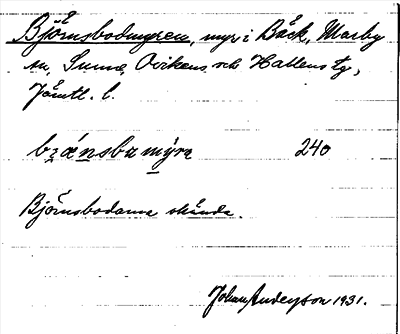 Björnsbodmyren, myr i Bäck, Marby
sn, Sunne, Ovikens och Hallens tg,
Jämtl. l.
bzǽnsbumýrɐ 240
Björnsbodarna skända.
Johan Anderson 1931.